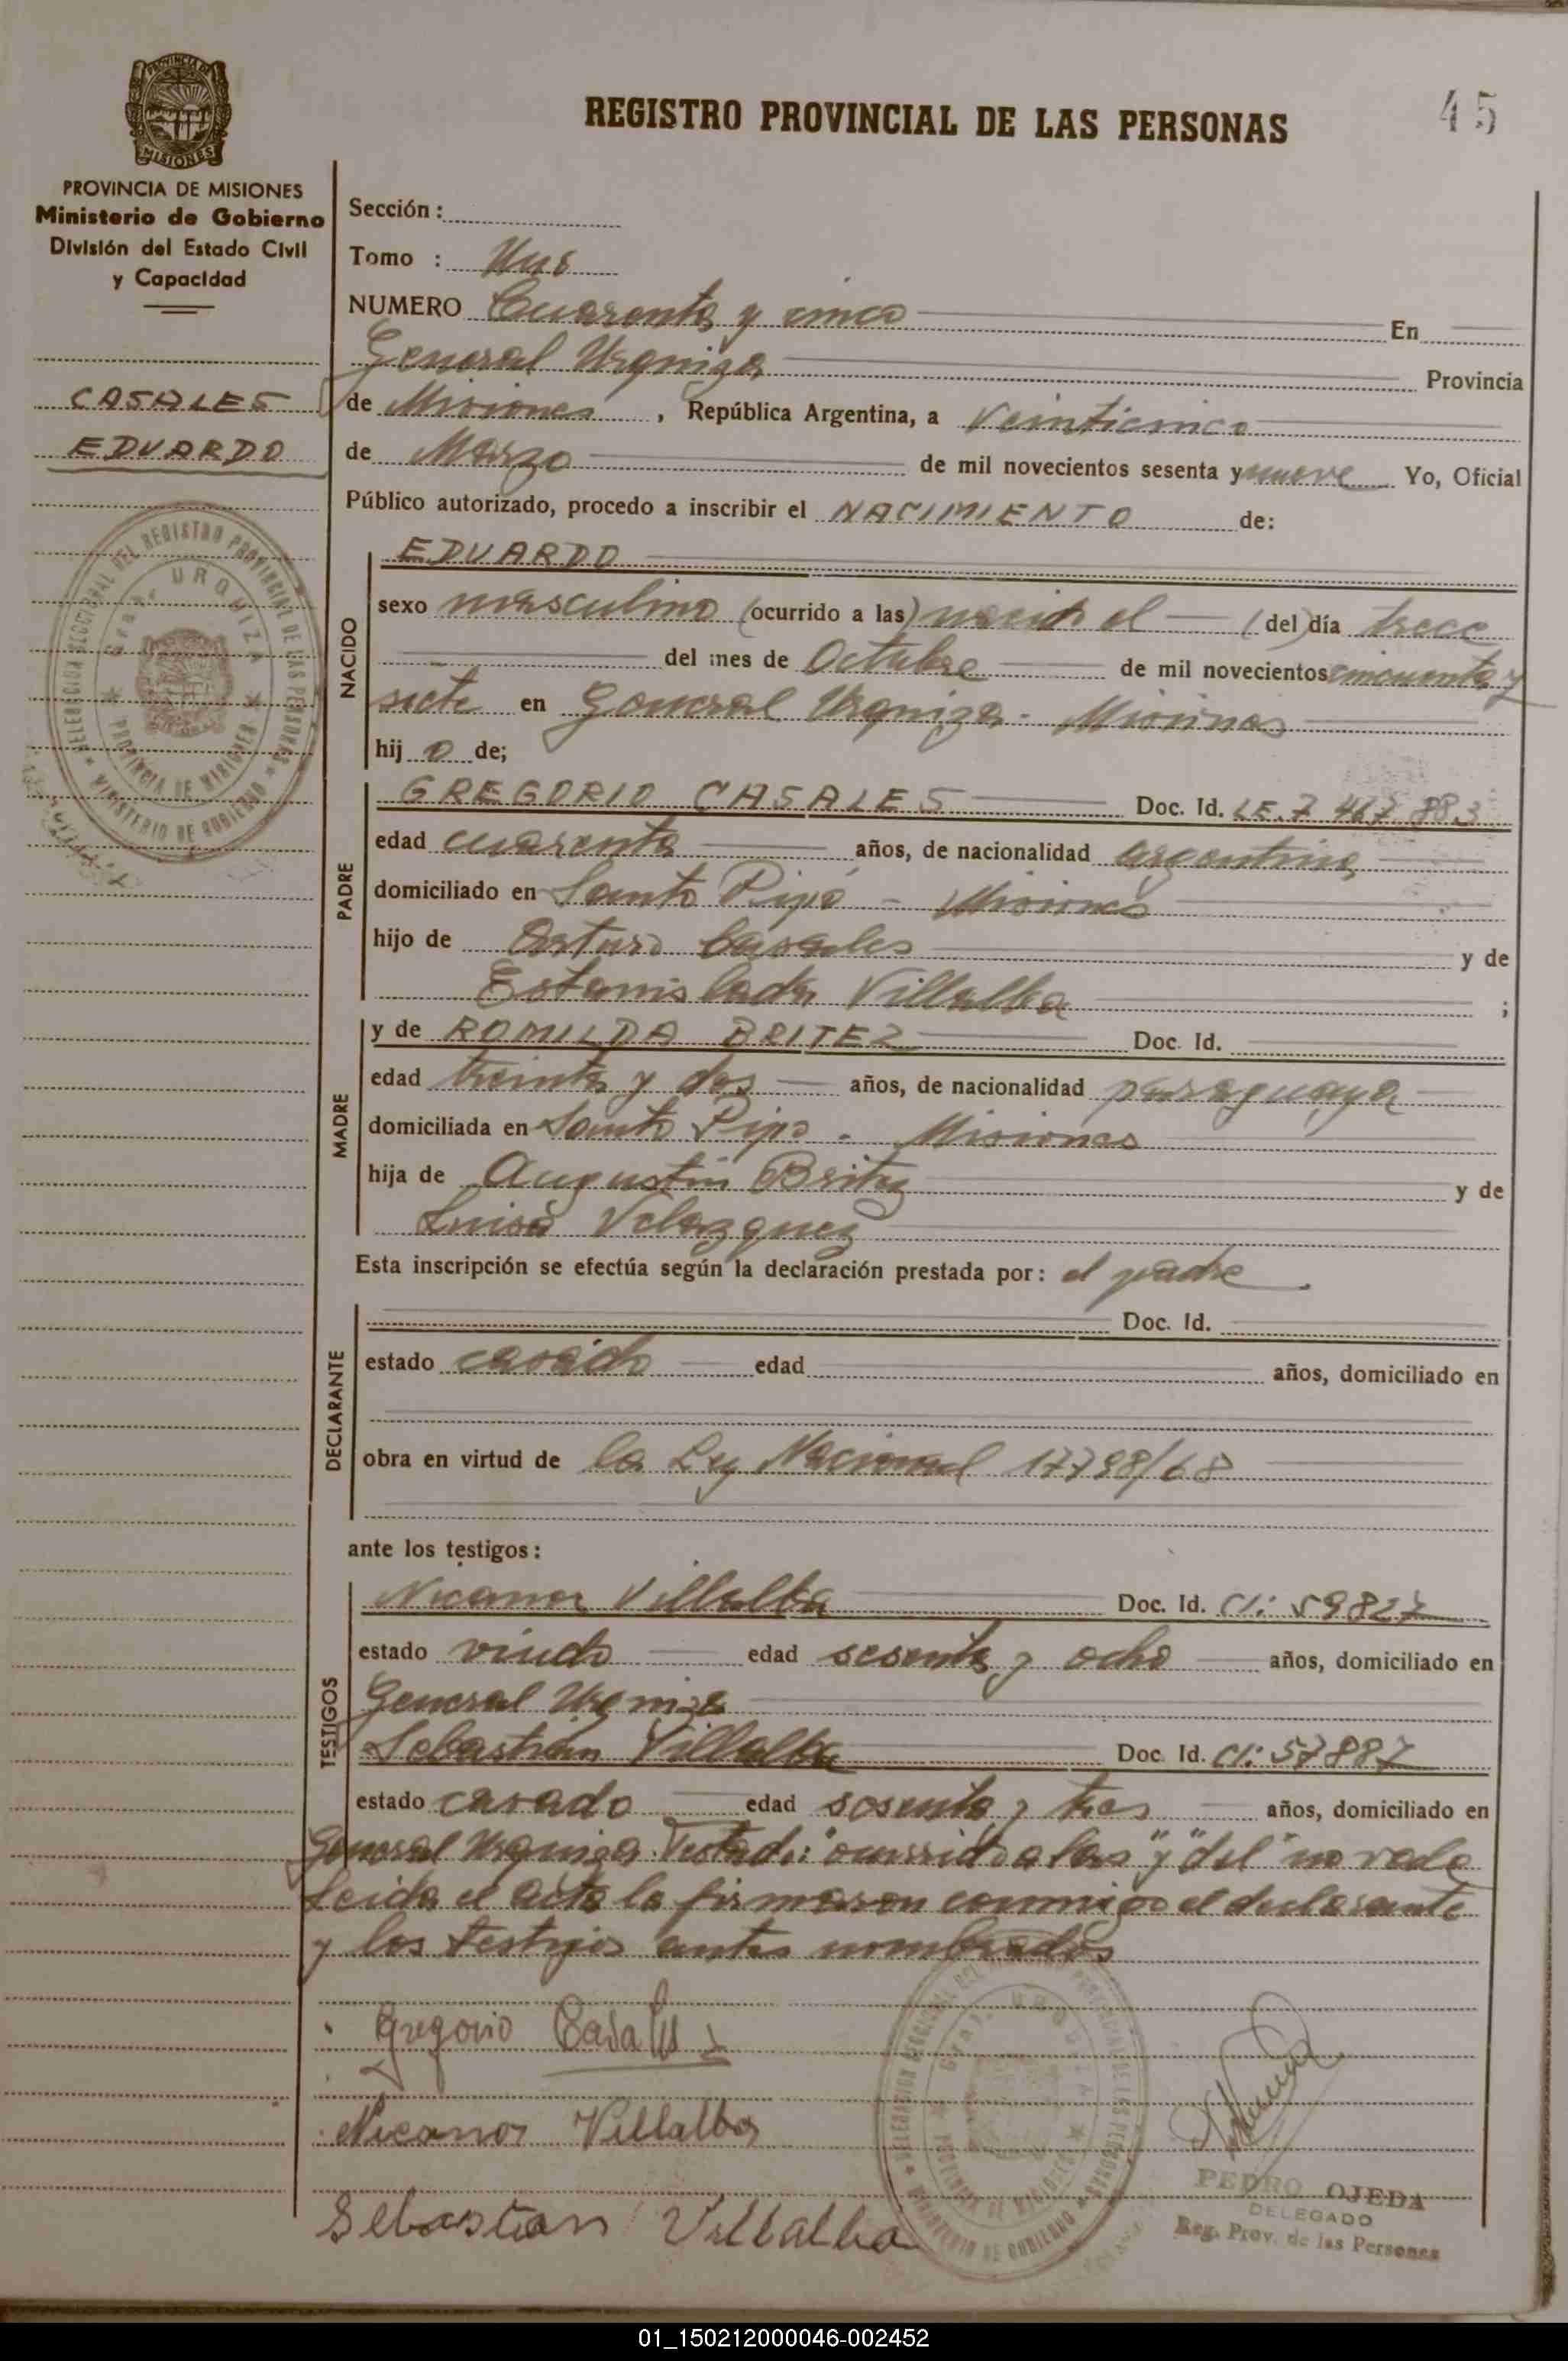 REGISTRO PROVINCIAL DE LAS PERSONAS
45
PROVINCIA DE MISIONES
Ministerio de Gobierno
División del Estado Civil
y Capacidad
CASALES
EDUARDO
Sección:
Tomo : Uno
NUMERO Cuarenta y cinco En
General Urquiza Provincia
de Misiones, República Argentina, a veinticinco
de Marzo de mil novecientos sesenta y nueve Yo, Oficial
Público autorizado, procedo a inscribir el NACIMIENTO de:
NACIDO
EDUARDO
sexo masculino (ocurrido a las) nacido el (del) día trece
del mes de Octubre de mil novecientos cincuenta y
siete en General Urquiza - Misiones
hij o de;
PADRE
GREGORIO CASALES Doc. Id. LE. 7 467 883
edad cuarenta años, de nacionalidad argentina
domiciliado en Santo Pipó - Misiones
hijo de Arturo Casales y de
Estanislada Villalba ;
MADRE
y de ROMILDA BRITEZ Doc. Id.
edad treinta y dos años, de nacionalidad paraguaya
domiciliada en Santo Pipo - Misiones
hija de Augustin Britez y de
Luisa Velazquez
Esta inscripción se efectúa según la declaración prestada por: el padre
DECLARANTE
Doc. Id.
estado casado edad años, domiciliado en
obra en virtud de la Ley Nacional 17798/68
ante los testigos:
TESTIGOS
Nicanor Villalba Doc. Id. CI: 59827
estado viudo edad sesenta y ocho años, domiciliado en
General Urquiza
Sebastián Villalba Doc. Id. CI: 57887
estado casado edad sesenta y tres años, domiciliado en
General Urquiza. Testado: "ocurrido a las" y "del" no vale
Leida el acta la firmaron conmigo el declarante
y los testigos antes nombrados
Gregorio Casales
Nicanor Villalba
Sebastian Villalba
PEDRO OJEDA
DELEGADO
Reg. Prov. de las Personas
01_150212000046-002452